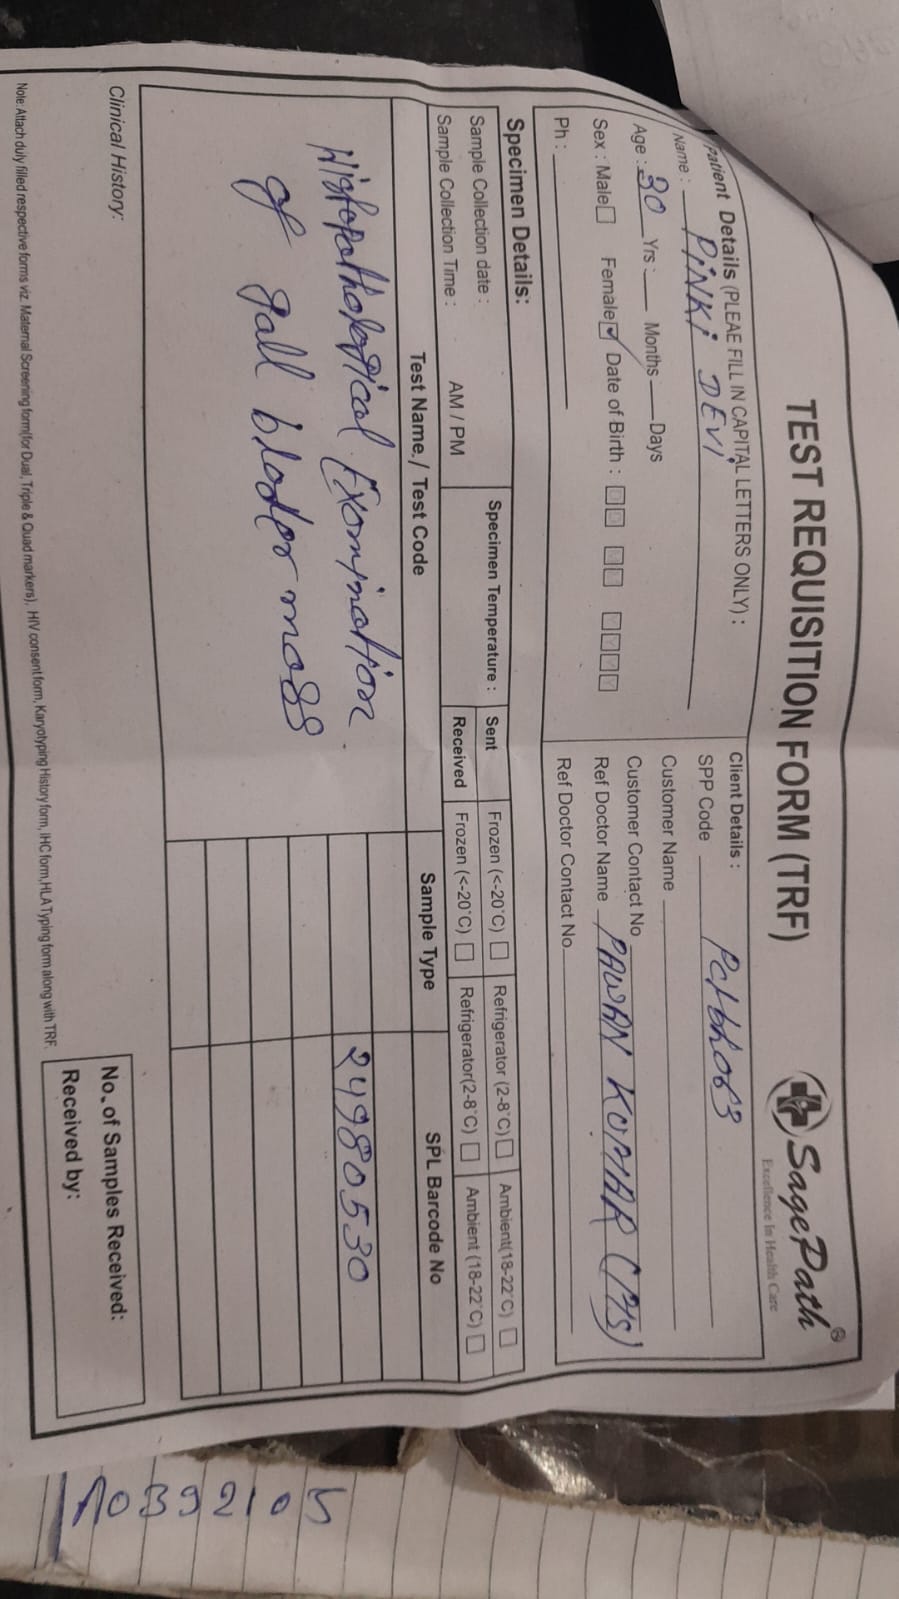 TEST REQUISITION FORM (TRF)
SagePath®
Excellence In Health Care
Patient Details (PLEAE FILL IN CAPITAL LETTERS ONLY) :
Name : PINKI DEVI
Age : 30 Yrs : Months Days
Sex : Male Female Date of Birth :
Ph :
Client Details :
SPP Code
Customer Name
Customer Contact No
Ref Doctor Name PAWAN KUMAR
Ref Doctor Contact No.
Specimen Details:
Sample Collection date :
Sample Collection Time : AM / PM
Specimen Temperature :
Sent Frozen (<-20°C) Refrigerator (2-8°C) Ambient(18-22°C)
Received Frozen (<-20°C) Refrigerator(2-8°C) Ambient (18-22°C)
Test Name./ Test Code Sample Type SPL Barcode No
Histopathological Examination 24980530
of gall blader mass
Clinical History:
No. of Samples Received:
Received by:
Note: Attach duly filled respective forms viz. Maternal Screening form(for Dual, Triple & Quad markers), HIV consent form, Karyotyping History form, IHC form,HLA Typing form along with TRF.